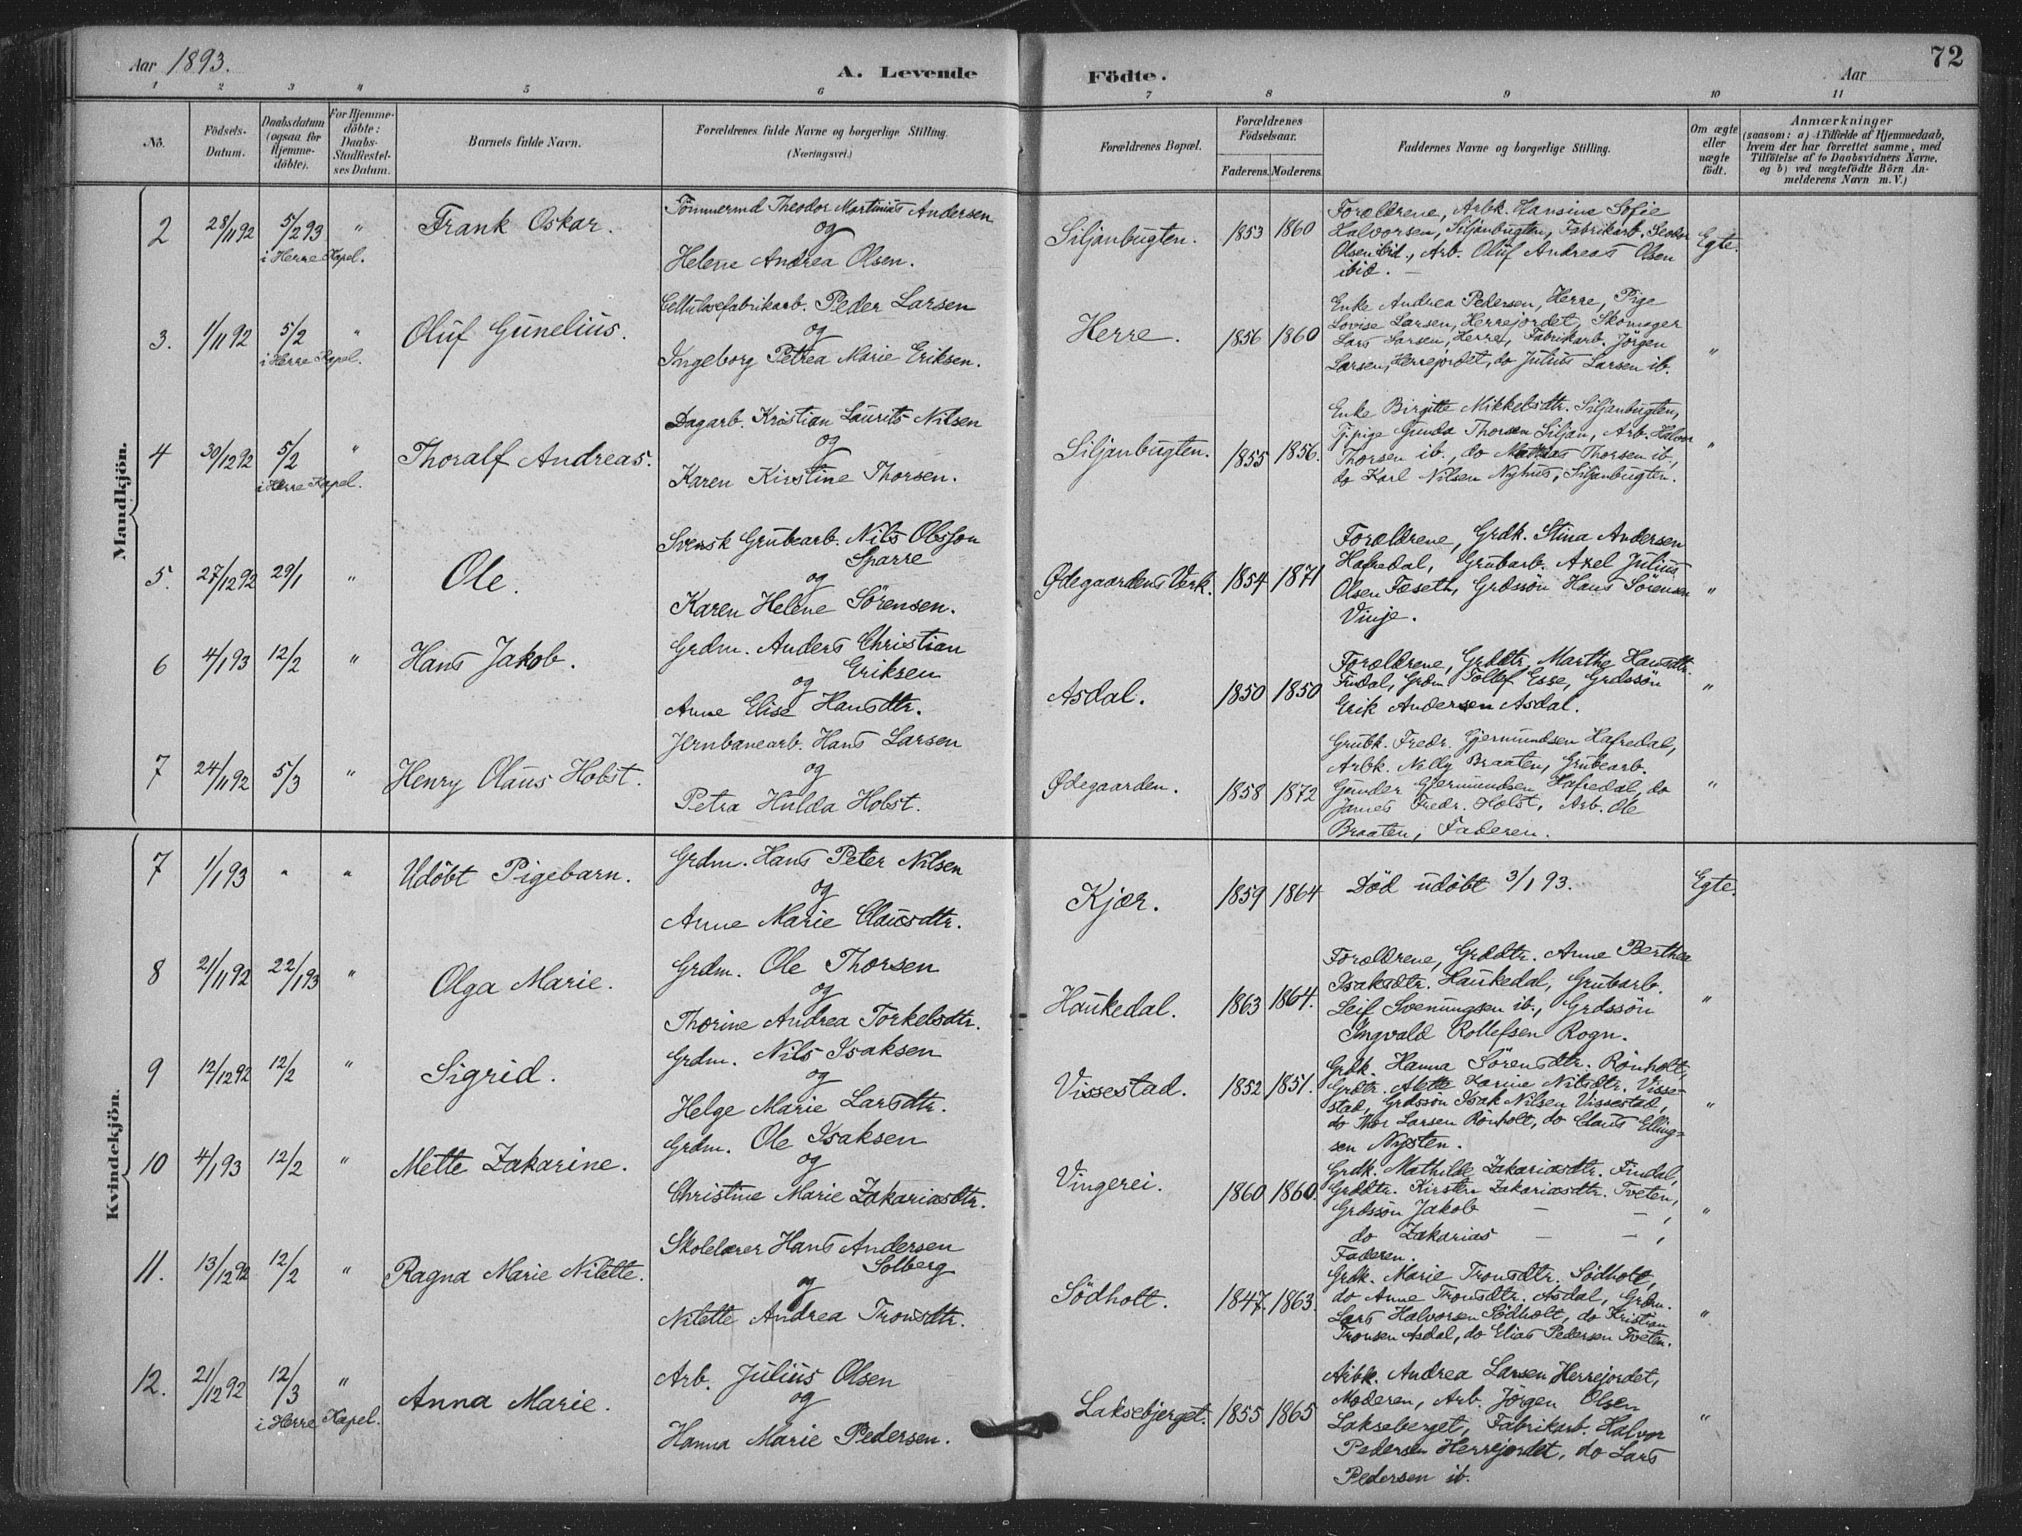 Aar 1893.
A. Levende
Födte.
Aar
72
1 2 3 4 5 6 7 8 9 10 11
No.
Födsels-
Datum.
Daabsdatum
(ogsaa for
Hjemme-
döbte).
For Hjemme-
döbte:
Daabs-
Stadfæstel-
ses Datum.
Barnets fulde Navn.
Forældrenes fulde Navne og borgerlige Stilling.
(Næringsvei.)
Forældrenes Bopæl.
Forældrenes
Födselsaar.
Faderens. Moderens.
Faddernes Navne og borgerlige Stilling.
Om ægte
eller
uægte
født.
Anmærkninger
(saasom: a) i Tilfælde af Hjemmedaab,
hvem der har forrettet samme, med
Tilföielse af to Daabsvidners Navne,
og b) ved uægtefödte Börn An-
melderens Navn m. V.)
Mandkjön.
2 28/11 92 5/2 93 " Frank Oskar.
i Herre Kapel.
Tömmermd Theodor Martinius Andersen
og
Helene Andrea Olsen.
Siljanbugten. 1853 1860
Forældrene, Arbk. Hansine Sofie
Halvorsen, Siljanbugten, Fabrikarb.
Olsen ibid., Arb. Oluf Andreas Olsen
ibid. —
Egte.
3. 1/11 92 5/2 " Oluf Gunelius.
i Herre Kapel.
Cellulosefabrikarb. Peder Larsen
og
Ingeborg Petrea Marie Eriksen.
Herre. 1856 1860
Enke Andrea Pedersen, Herre, Pige
Lovise Larsen, Herrejordet, Skomager
Lars Larsen, Herre, Fabrikarb. Jörgen
Larsen, Herrejordet, do Julius Larsen ib.
"
4 30/12 92 5/2 " Thoralf Andreas.
i Herre Kapel.
Dagarb. Kristian Laurits Nilsen
og
Karen Kirstine Thorsen.
Siljanbugten. 1855 1856.
Enke Birgitte Mikkelsdtr. Siljanbugten,
Tj.pige Gunda Thorsen Siljan, Arb. Halvor
Thorsen ib., do Mathias Thorsen ib,
do Karl Nilsen Nyhus, Siljanbugten.
"
5. 27/12 92 29/1 " Ole.
Svensk Grubearb. Nils Olsson
Sparre
og
Karen Helene Sörensen.
Ødegaardens Verk. 1854 1871
Forældrene, Grdk. Stina Andersen
Hafredal, Grubarb. Axel Julius
Olsen Fæseth, Grdssön Hans Sörensen
Vinje.
"
6 4/1 93 12/2 " Hans Jakob.
Grdm. Anders Christian
Eriksen
og
Anne Elise Hansdtr.
Asdal. 1850 1850
Forældrene, Grddtr. Marthe Hansdtr.
Findal, Grdm. Tollef Esse, Grdssön
Erik Andersen Asdal.
"
7 24/11 92 5/3 " Henry Olaus Hobst.
Jernbanearb. Hans Larsen
og
Petra Hulda Hobst.
Ødegaarden. 1858 1872
Grubk. Fredr. Gjermundsen Hafredal,
Arbk. Nelly Braaten, Grubearb.
Gunder Gjermundsen Hafredal, do
James Fredr. Holst, Arb. Ole
Braaten, Faderen.
"
Kvindekjön.
7 1/1 93 " " Udöbt Pigebarn.
Grdm. Hans Peter Nilsen
og
Anne Marie Clausdtr.
Kjær. 1859 1864
Död udöbt 3/1 93.
Egte.
8 21/11 92 22/1 93 " Olga Marie.
Grdm. Ole Thorsen
og
Thorine Andrea Torkelsdtr.
Haukedal. 1863 1864.
Forældrene, Grddtr. Anne Berthea
Isaksdtr. Haukedal, Grubarb.
Leif Svenungsen ib., Grdssön
Ingvald Rollefsen Rogn.
"
9 12/12 92 12/2 " Sigrid.
Grdm. Nils Isaksen
og
Helge Marie Larsdtr.
Vissestad. 1852 1851.
Grdk. Hanna Sörensdtr. Rönholt,
Grddtr. Alette Karine Nilsdtr. Visse-
stad, Grdssön Isak Nilsen Vissestad,
do Thor Larsen Rönholt, do Claus Elling-
sen Nysten.
"
10 4/1 93 12/2 " Mette Zakarine.
Grdm. Ole Isaksen
og
Christine Marie Zakariasdtr.
Vingerei. 1860 1860
Grdk. Mathilde Zakariasdtr. Findal,
Grddtr. Kirsten Zakariasdtr. Tveten,
Grdssön Jakob — — ,
do Zakarias — — ,
Faderen.
"
11. 13/12 92 12/2 " Ragna Marie Nilette.
Skolelærer Hans Andersen
Solberg
og
Nilette Andrea Tronsdtr.
Södholt. 1847. 1863.
Grdk. Marie Tronsdtr. Södholt,
do Anne Tronsdtr. Asdal, Grdm.
Lars Halvorsen Södholt, do Kristian
Tronsen Asdal, do Elias Pedersen Tveten.
"
12. 21/12 92 12/3 " Anna Marie.
i Herre Kapel.
Arb. Julius Olsen
og
Hanna Marie Pedersen.
Laksebjerget. 1855 1865
Arbk. Andrea Larsen Herrejordet,
Moderen, Arb. Jörgen Olsen
Lakseberget, Fabrikarb. Halvor
Pedersen Herrejordet, do Lars
Pedersen ib.
"